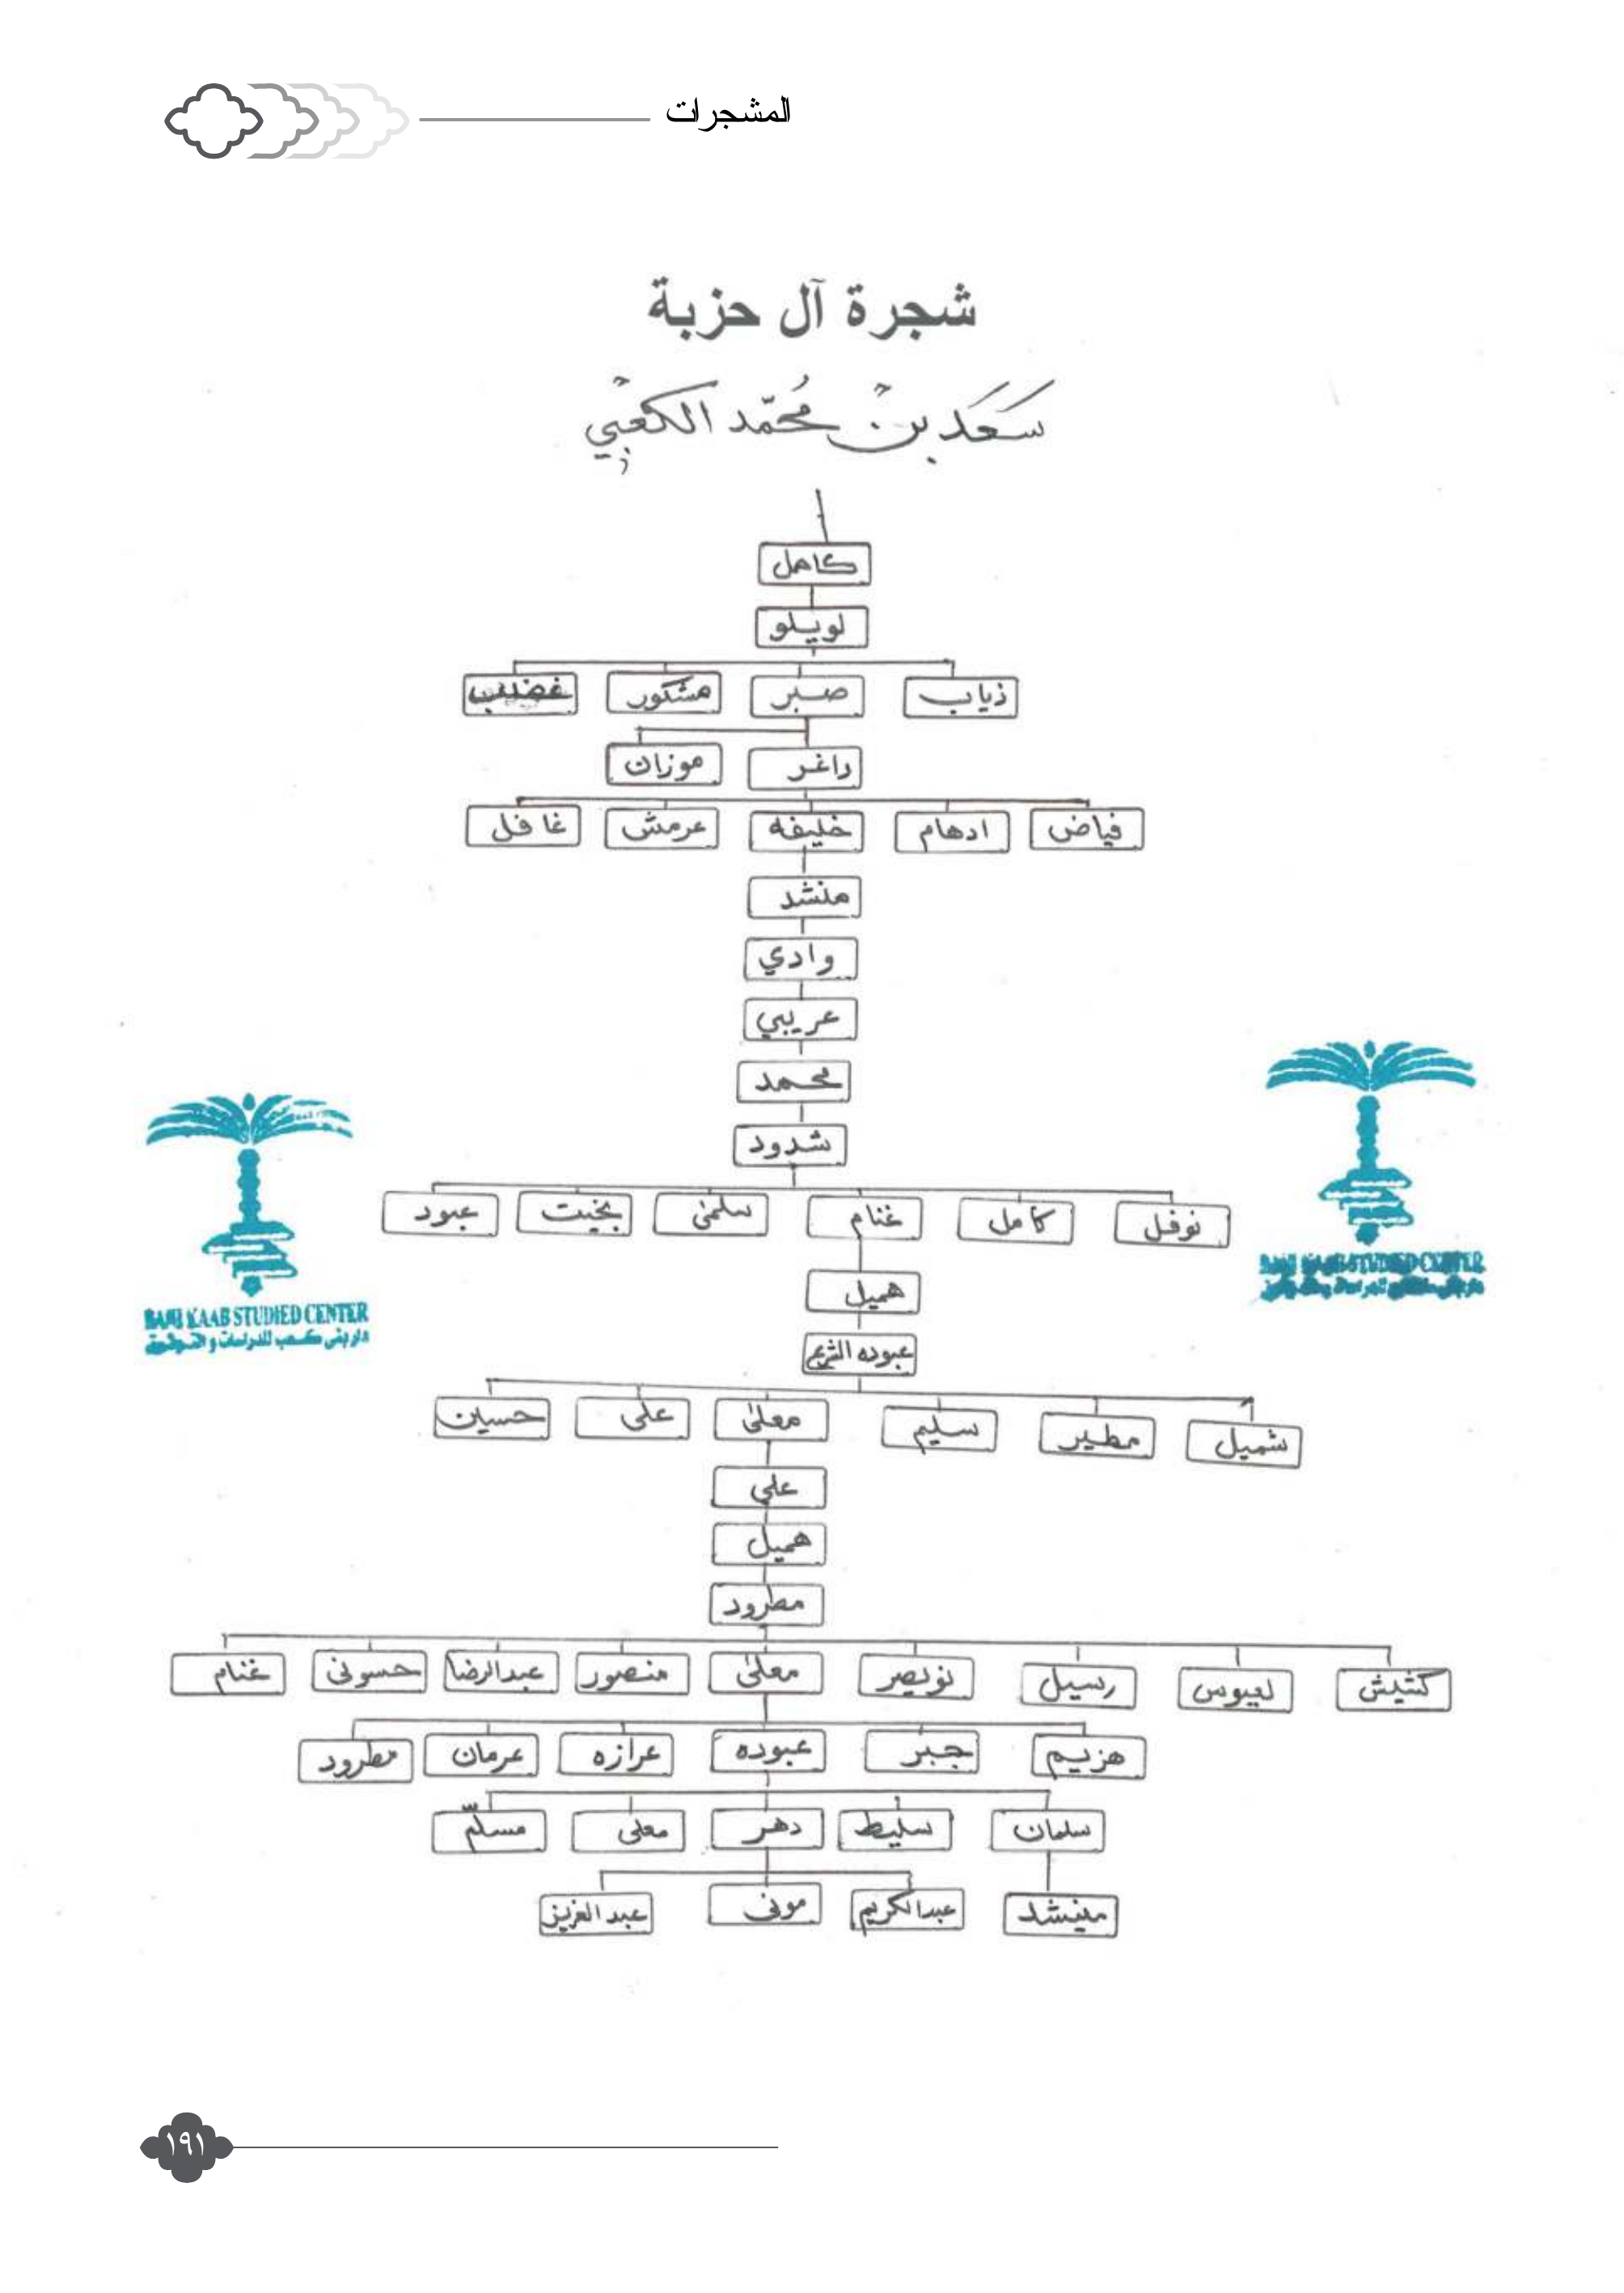 المشجرات
شجرة آل حزبة
سَعَد بن مُحَمّد الكعبي
كامل
لويلو
ذياب صبر مشكور غضيب
داغر موزان
فياض ادهام خليفه عرمش غافل
منشد
وادي
عريبي
محمد
شدود
نوفل كامل غنام سلمى بخيت عبود
هميل
عبوده الشرع
شميل مطير سليم معلى على حسين
علي
هميل
مطرود
كشيش لعيوس رسيل نويصر معلى منصور عبدالرضا حسونى غنام
هزيم جبر عبوده عرازه عرمان مطرود
سلمان سليط دهر معلى مسلّم
منيشد عبدالكريم مونى عبد العزيز
BANI KAAB STUDIED CENTER
دار بني كعب للدراسات و التوثيق
BANI KAAB STUDIED CENTER
١٩١